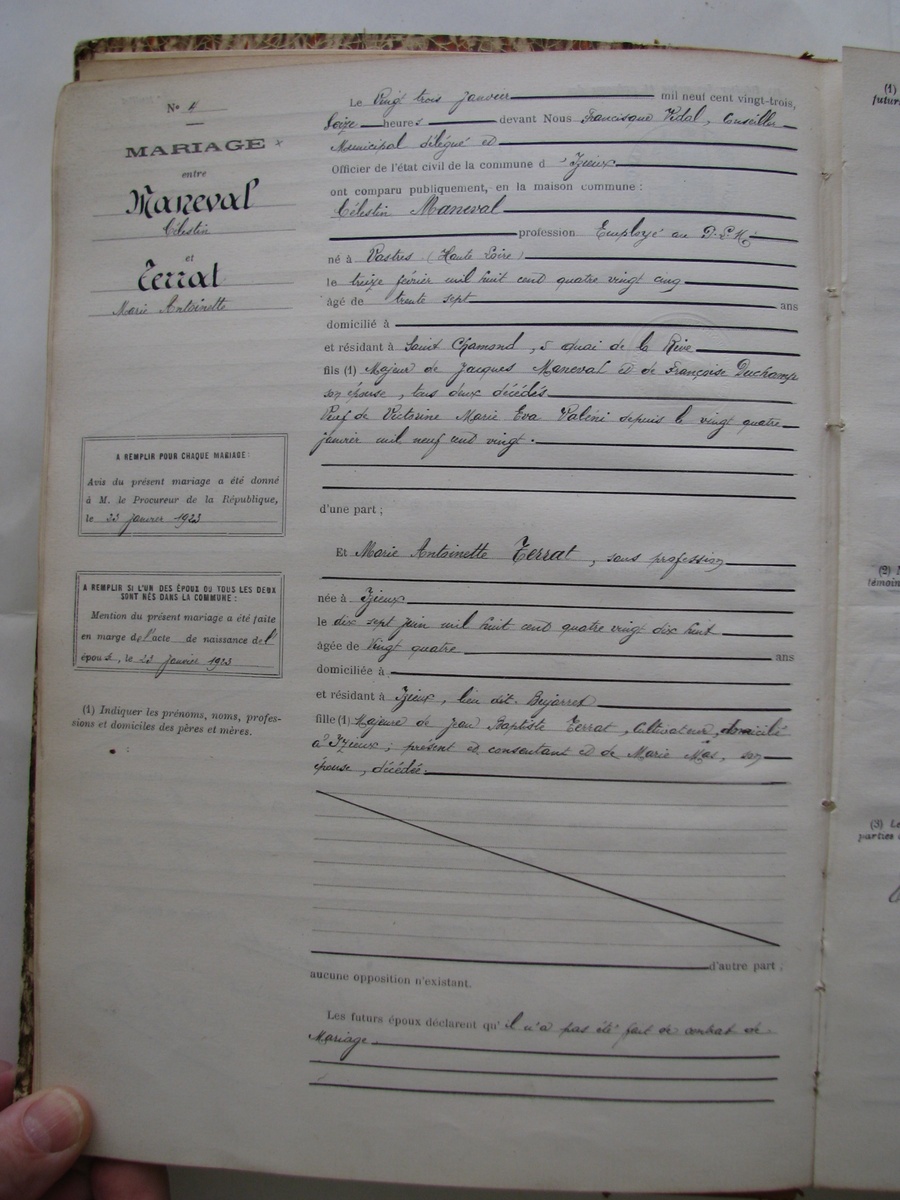 N° 4
MARIAGE
entre
Maneval
Célestin
et
Terrat
Marie Antoinette
A REMPLIR POUR CHAQUE MARIAGE :
Avis du présent mariage a été donné
à M. le Procureur de la République,
le 23 janvier 1923
A REMPLIR SI L'UN DES ÉPOUX OU TOUS LES DEUX
SONT NÉS DANS LA COMMUNE :
Mention du présent mariage a été faite
en marge de l'acte de naissance de l'
épouse, le 23 janvier 1923
(1) Indiquer les prénoms, noms, profes-
sions et domiciles des pères et mères.
Le Vingt trois janvier mil neuf cent vingt-trois,
Seize heures devant Nous Francisque Vidal, Conseiller
Municipal délégué et
Officier de l'état civil de la commune d'Izieux
ont comparu publiquement, en la maison commune :
Célestin Maneval
profession Employé au P.L.M.
né à Vastres (Haute Loire)
le treize février mil huit cent quatre vingt cinq
âgé de trente sept ans
domicilié à
et résidant à Saint Chamond, 5 quai de la Rive
fils (1) Majeur de Jacques Maneval et de Françoise Duchamp
son épouse, tous deux décédés
Veuf de Victorine Marie Eva depuis le vingt quatre
janvier mil neuf cent vingt.
d'une part ;
Et Marie Antoinette Terrat, sans profession
née à Izieux
le dix sept juin mil huit cent quatre vingt dix huit
âgée de Vingt quatre ans
domiciliée à
et résidant à Izieux, lieu dit
fille (1) Majeure de Jean Baptiste Terrat, Cultivateur, domicilié
à Izieux ; présent et consentant et de Marie Mas, son
épouse, décédée.
d'autre part ;
aucune opposition n'existant.
Les futurs époux déclarent qu'il n'a pas été fait de contrat de
Mariage
(1)
futur
(2)
témoin
(3) Le
parties